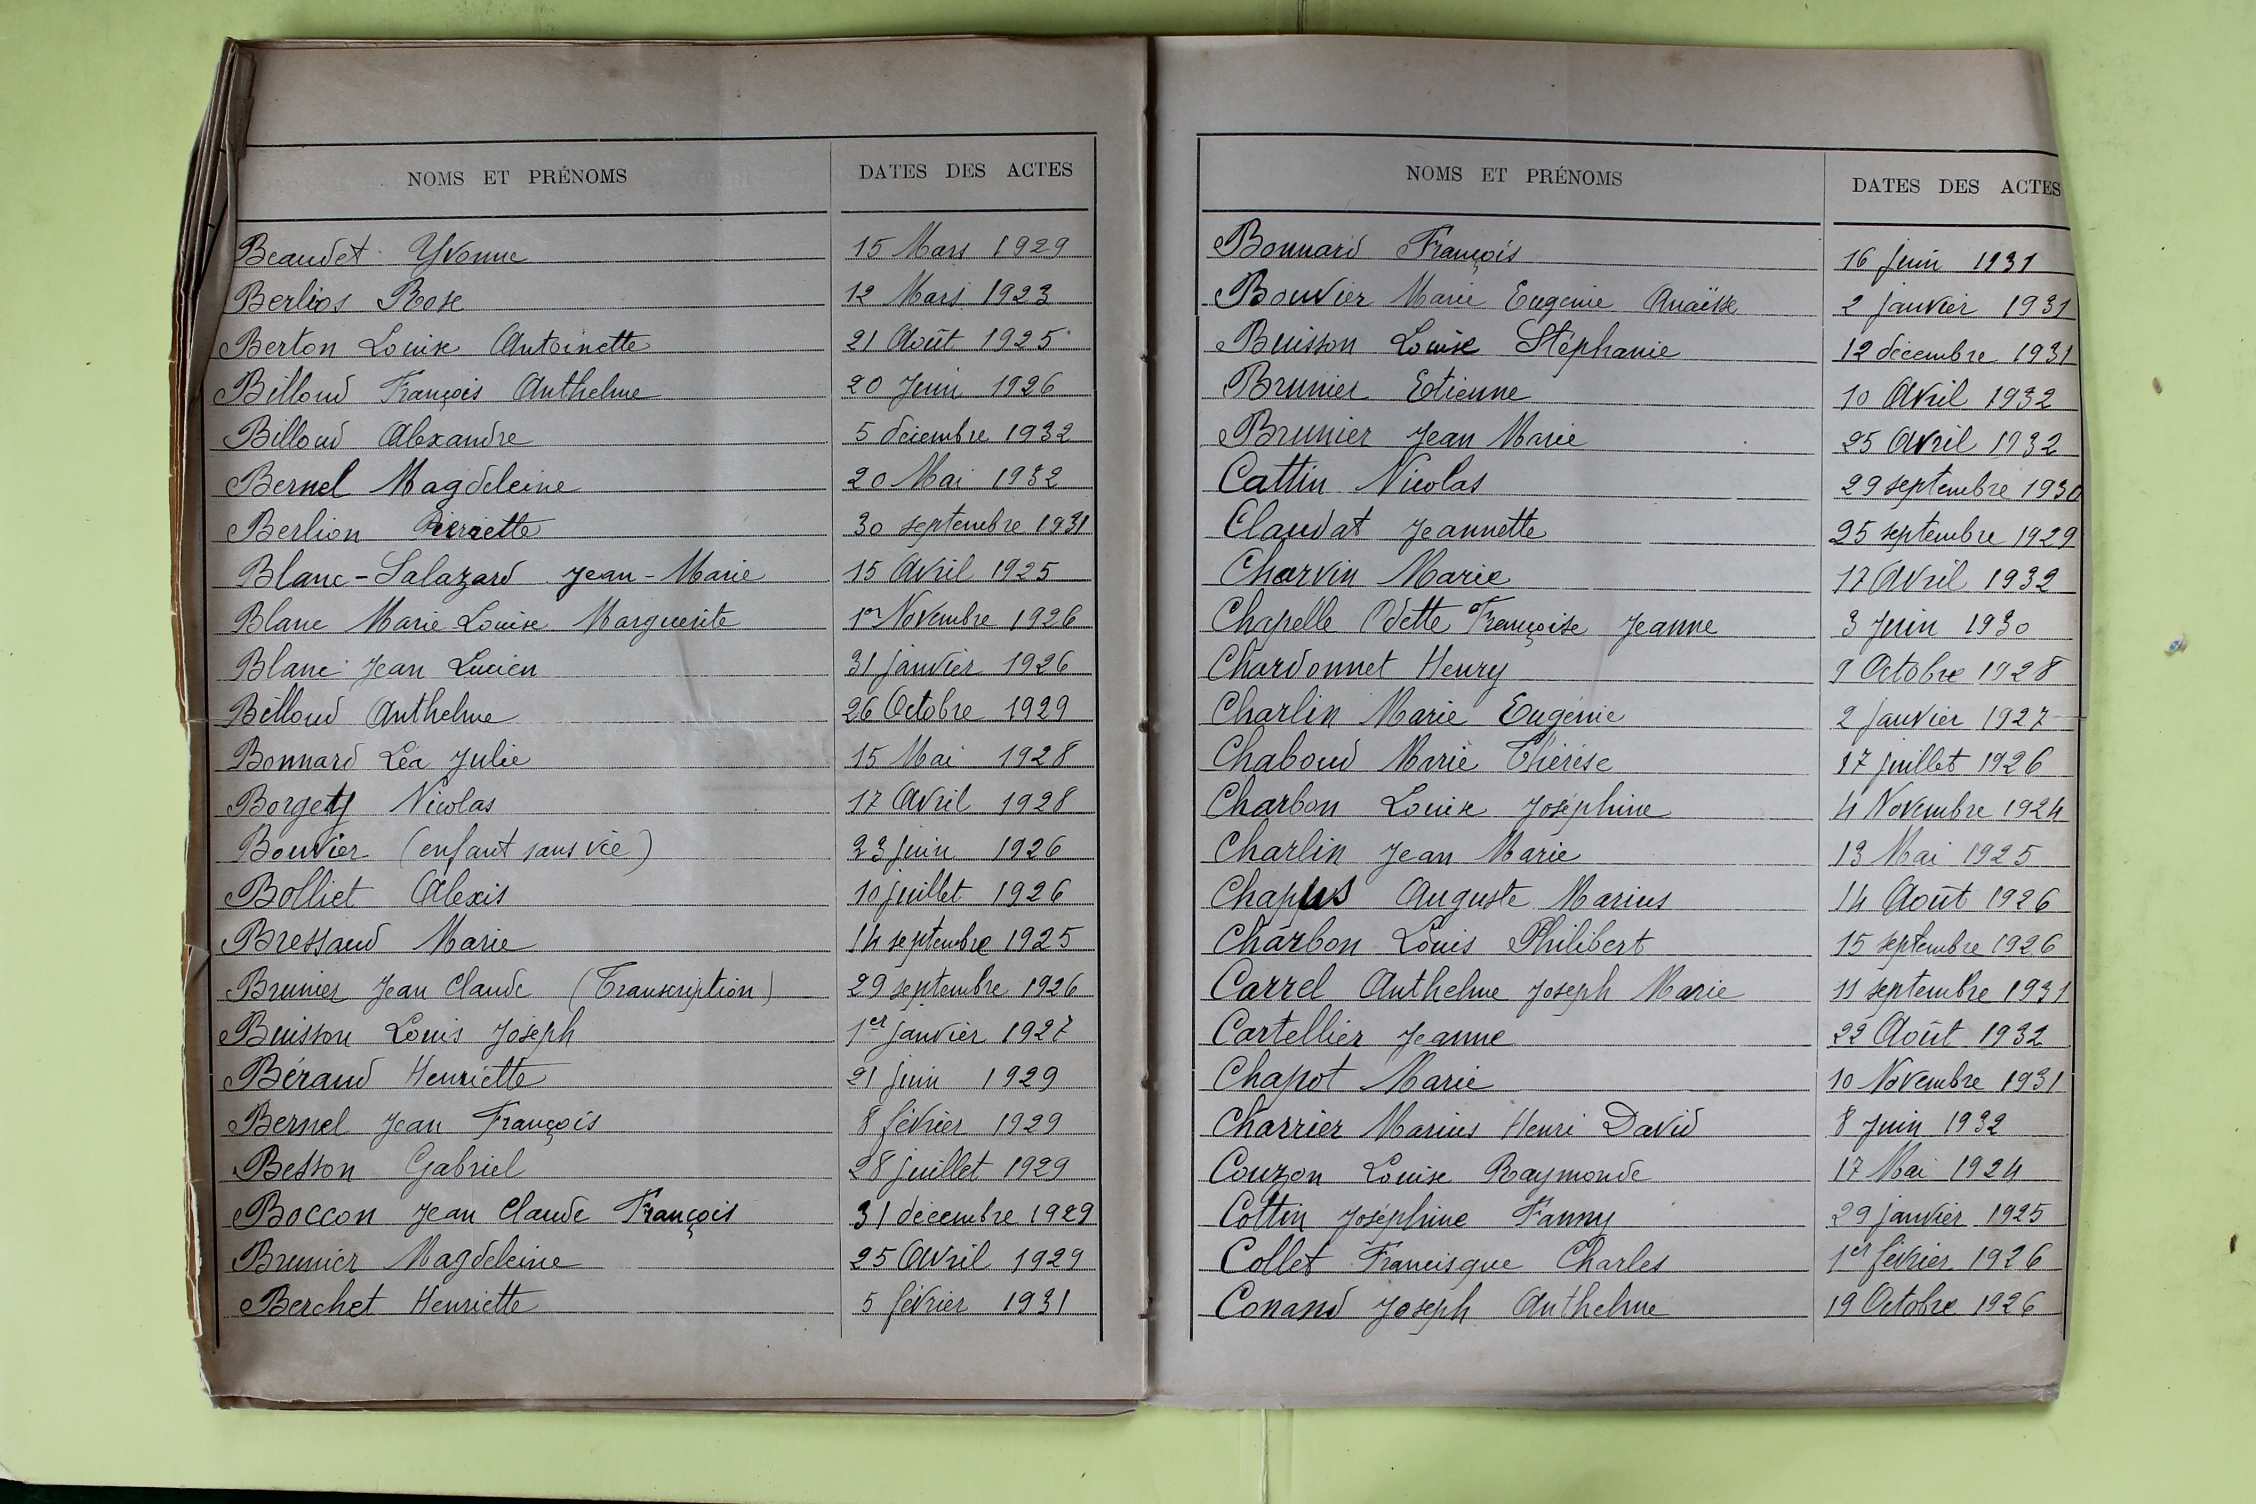 NOMS ET PRÉNOMS DATES DES ACTES
Beaudet Yvonne 15 Mars 1929
Berlios Rose 12 Mars 1923
Berton Louise Antoinette 21 Août 1925
Billoud François Anthelme 20 Juin 1926
Billoud Alexandre 5 décembre 1932
Bernel Magdeleine 20 Mai 1932
Berlion Pierrette 30 septembre 1931
Blanc-Salazard Jean-Marie 15 Avril 1925
Blanc Marie Louise Marguerite 1er Novembre 1926
Blanc Jean Lucien 31 janvier 1926
Billoud Anthelme 26 Octobre 1929
Bonnard Léa Julie 15 Mai 1928
Borgety Nicolas 17 Avril 1928
Bouvier (enfant sans vie) 23 juin 1926
Bolliet Alexis 10 juillet 1926
Bressaud Marie 14 septembre 1925
Brunier Jean Claude (Transcription) 29 septembre 1926
Buisson Louis Joseph 1er janvier 1927
Béraud Henriette 21 juin 1929
Bernel Jean François 8 février 1929
Besson Gabriel 28 juillet 1929
Boccon Jean Claude François 31 décembre 1929
Brunier Magdeleine 25 Avril 1929
Berchet Henriette 5 février 1931
NOMS ET PRÉNOMS DATES DES ACTES
Bonnard François 16 juin 1931
Bouvier Marie Eugenie Anaïsse 2 janvier 1931
Buisson Louise Stéphanie 12 décembre 1931
Brunier Etienne 10 Avril 1932
Brunier Jean Marie 25 Avril 1932
Cattin Nicolas 29 septembre 1930
Claudat Jeannette 25 septembre 1929
Charvin Marie 17 Avril 1932
Chapelle Odette Françoise Jeanne 3 Juin 1930
Chardonnet Henry 9 Octobre 1928
Charlin Marie Eugenie 2 janvier 1927
Chaboud Marie Thérèse 17 juillet 1926
Charbon Louise Joséphine 4 Novembre 1924
Charlin Jean Marie 13 Mai 1925
Chapus Auguste Marius 14 Août 1926
Charbon Louis Philibert 15 septembre 1926
Carrel Anthelme Joseph Marie 11 septembre 1931
Cartellier Jeanne 22 Août 1932
Chapot Marie 10 Novembre 1931
Charrier Marius Henri David 8 Juin 1932
Couzon Louise Raymonde 17 Mai 1924
Cottin Joséphine Fanny 29 janvier 1925
Collet Francisque Charles 1er février 1926
Conand Joseph Anthelme 19 Octobre 1926